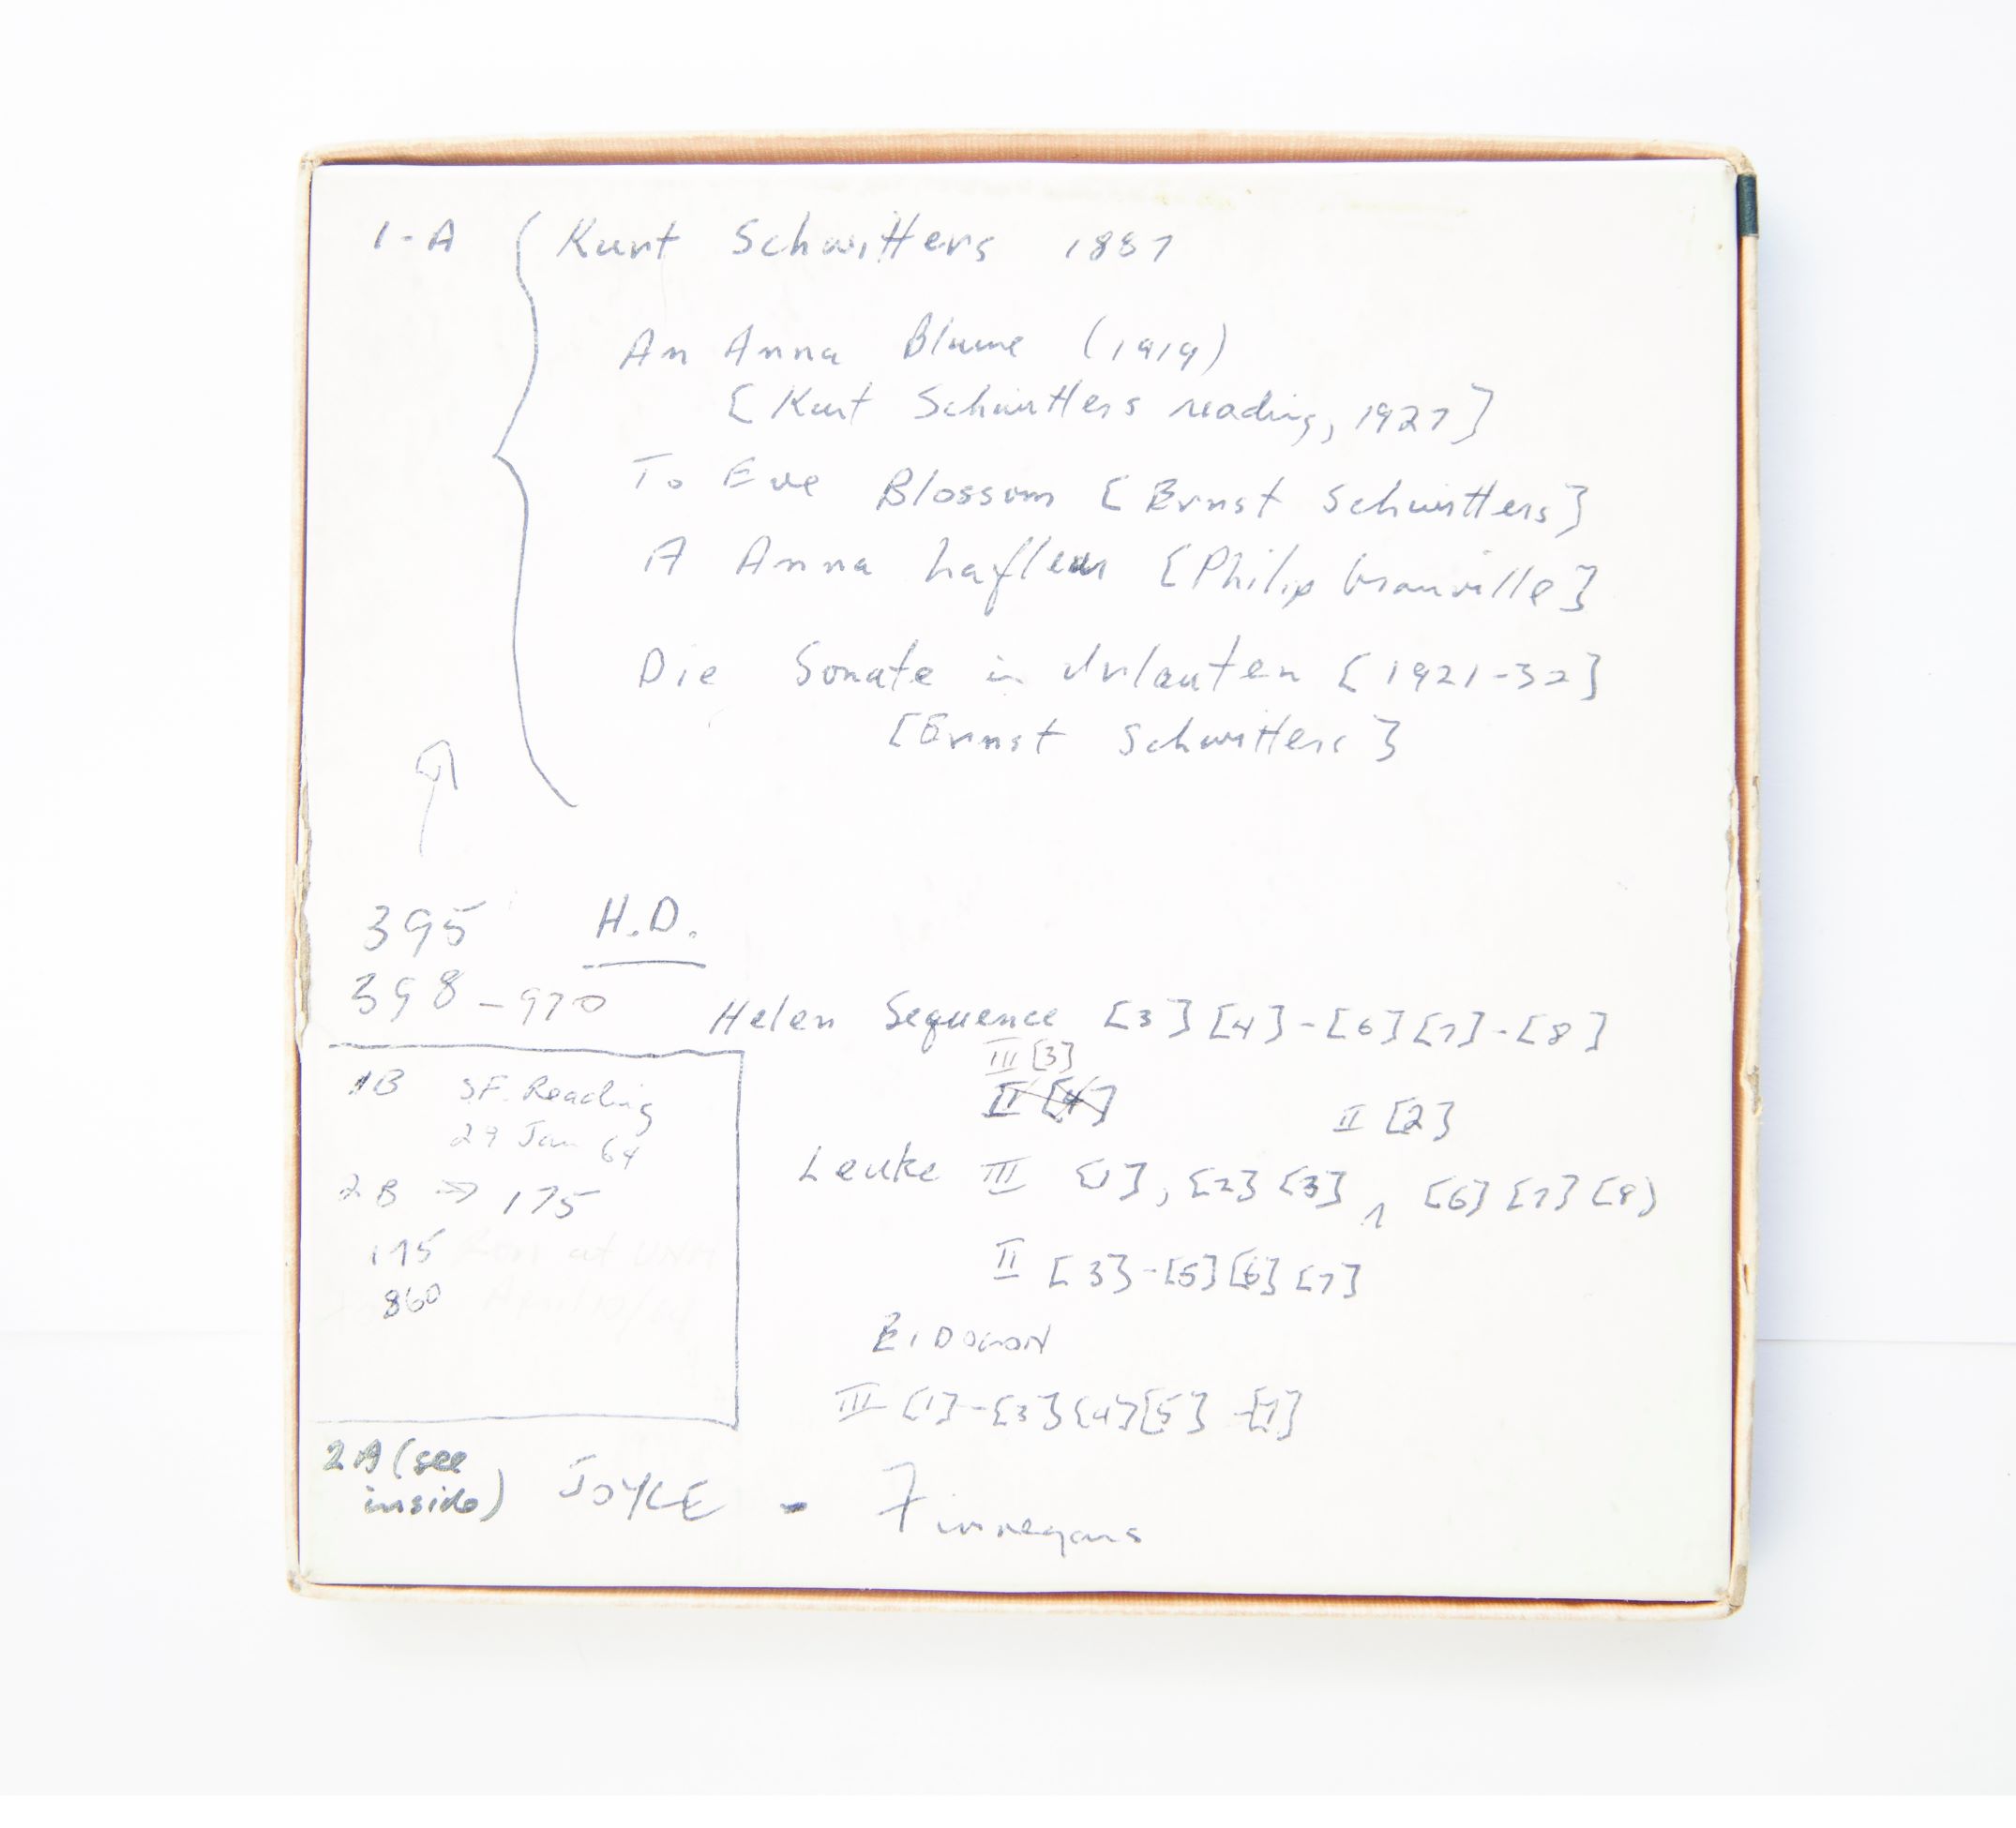 1-A Kurt Schwitters 1887
An Anna Blume (1919)
[Kurt Schwitters reading, 1927]
To Eve Blossom [Ernst Schwitters]
A Anna Lafleur [Philip Granville]
Die Sonate in Urlauten [1921-32]
[Ernst Schwitters]
395 H.D.
398-970
Helen Sequence [3][4]-[6][7]-[8]
III [3]
II [4]
II [2]
Leuke III [1], [2] [3] [6] [7] [8]
II [3]-[5][6][7]
EIDOLON
III [1]-[3][4][5]-[7]
1B SF. Reading
29 Jan 64
2B ⇒ 175
175 at UNM
860
2A (see
inside)
JOYCE - Finnegans